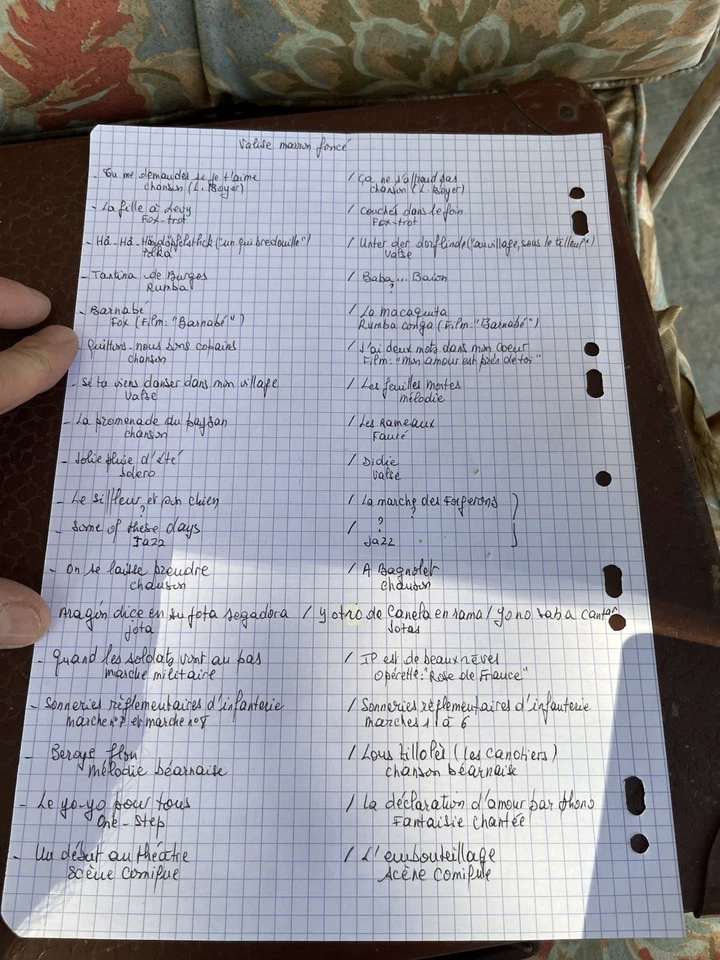 Valise marron foncé
- Tu me demandes si je t'aime / Ça ne s'apprend pas
chanson (L. Boyer) chanson (L. Boyer)
- La fille à Levy / Couchés dans le foin
Fox-trot Fox-trot
- Hâ-Hâ- ("un qui bredouille") / Unter der dorflinde ("au village, sous le tilleul")
Polka Valse
- Tantina de Burgos / Baba...
Rumba ?
- Barnabé / La macaquita
Fox (Film: "Barnabé") Rumba conga (Film: "Barnabé")
- Quittons-nous bons copains / J'ai deux mots dans mon coeur
chanson Film: "Mon amour est près de toi"
- Si tu viens danser dans mon village / Les feuilles mortes
Valse mélodie
- La promenade du paysan / Les Rameaux
chanson Fauré
- Jolie pluie d'été / Didie
bolero valse
- Le siffleur et son chien / La marche des Forgerons
? ?
- Some of these days / ?
Jazz Jazz
- On se laisse prendre / A Bagnolet
chanson chanson
- Aragón dice en su jota segadora / Y otro de Canela en rama / Yo no saba cantar
jota Jotas
- Quand les soldats vont au pas / IP est de beaux rêves
marche militaire Opérette: "Rose de France"
- Sonneries règlementaires d'infanterie / Sonneries règlementaires d'infanterie
marche n°7 et marche n°8 marches 1 à 6
- flou / Lous tilloles (les canotiers)
mélodie béarnaise chanson béarnaise
- Le yo-yo pour tous / La déclaration d'amour par phono
One-Step Fantaisie chantée
- Un début au théâtre / L'embouteillage
Scène comique Scène comique